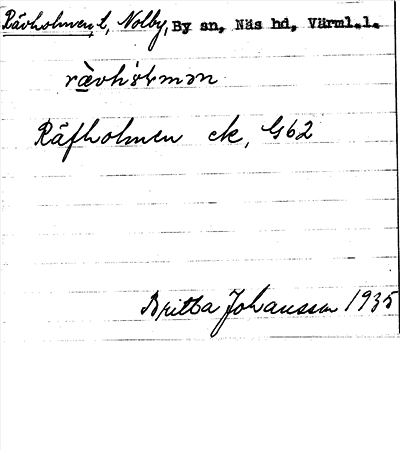 Rävholmen, t, Nolby, By sn, Näs hd, Värml.l.
Räfholmen ek, G62
Britta Johansson 1935